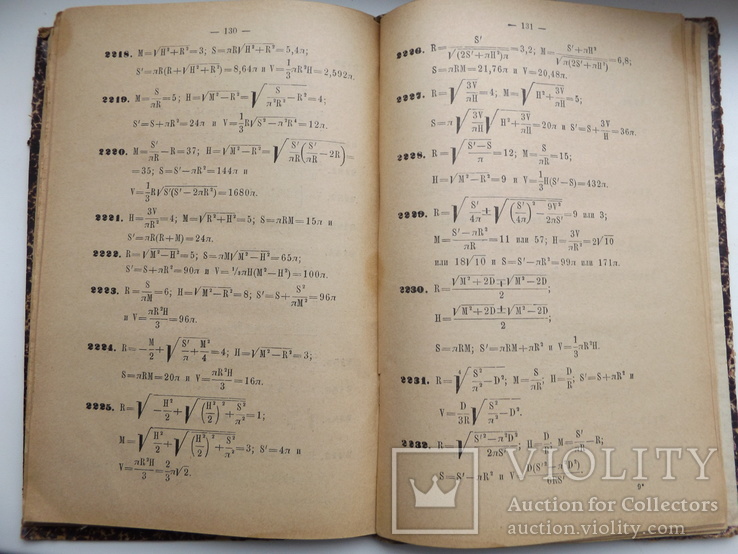 — 130 —
2218. M=√H²+R²=3; S=πR√H²+R²=5,4π;
S'=πR(R+√H²+R²)=8,64π и V=1/3πR²H=2,592π.
2219. M=S/πR=5; H=√M²−R²=√S²/π²R²−R²=4;
S'=S+πR²=24π и V=1/3R√S²−π²R⁴=12π.
2220. M=S'/πR−R=37; H=√M²−R²=√S'/πR(S'/πR−2R)=
=35; S=S'−πR²=144π и
V=1/3R√S'(S'−2πR²)=1680π.
2221. H=3V/πR²=4; M=√R²+H²=5; S=πRM=15π и
S'=πR(R+M)=24π.
2222. R=√M²−H²=5; S=πM√M²−H²=65π;
S'=S+πR²=90π и V=¹/₃πH(M²−H²)=100π.
2223. R=S/πM=6; H=√M²−R²=8; S'=S+S²/πM²=96π
и V=πR²H/3=96π.
2224. R=−M/2+√S'/π+M²/4=4; H=√M²−R²=3;
S=πRM=20π и V=πR²H/3=16π.
2225. R=√−H²/2+√(H²/2)²+S²/π²=1;
M=√H²/2+√(H²/2)²+S²/π²=3; S'=4π и
V=πR²H/3=2/3π√2.
— 131 —
2226. R=S'/√(2S'+πH²)π=3,2; M=S'+πH²/√π(2S'+πH²)=6,8;
S=πRM=21,76π и V=20,48π.
2227. R=√3V/πH=4; M=√H²+3V/πH=5;
S=π√3V/πH√H²+3V/πH=20π и S'=S+3V/H=36π.
2228. R=√S'−S/π=12; M=S/πR=15;
H=√M²−R²=9 и V=1/3H(S'−S)=432π.
2229. R=√S'/4π±√(S'/4π)²−9V²/2πS'=9 или 3;
M=S'−πR²/πR=11 или 57; H=3V/πR²=2√10
или 18√10 и S=S'−πR²=99π или 171π.
2230. R=√M²+2D∓√M²−2D/2;
H=√M²+2D±√M²−2D/2;
S=πRM; S'=πRM+πR² и V=1/3πR²H.
2231. R=⁴√S²/π²−D²; M=S/πR; H=D/R; S'=S+πR² и
V=D/3R√S²/π²−D².
2232. R=√S'²−π²D²/2πS'; H=D/R; M=S'/πR−R;
S=S'−πR² и V=D(S'²−π²D²)/6RS'.
9*
VIOLITY
Auction for Collectors
auction.violity.com